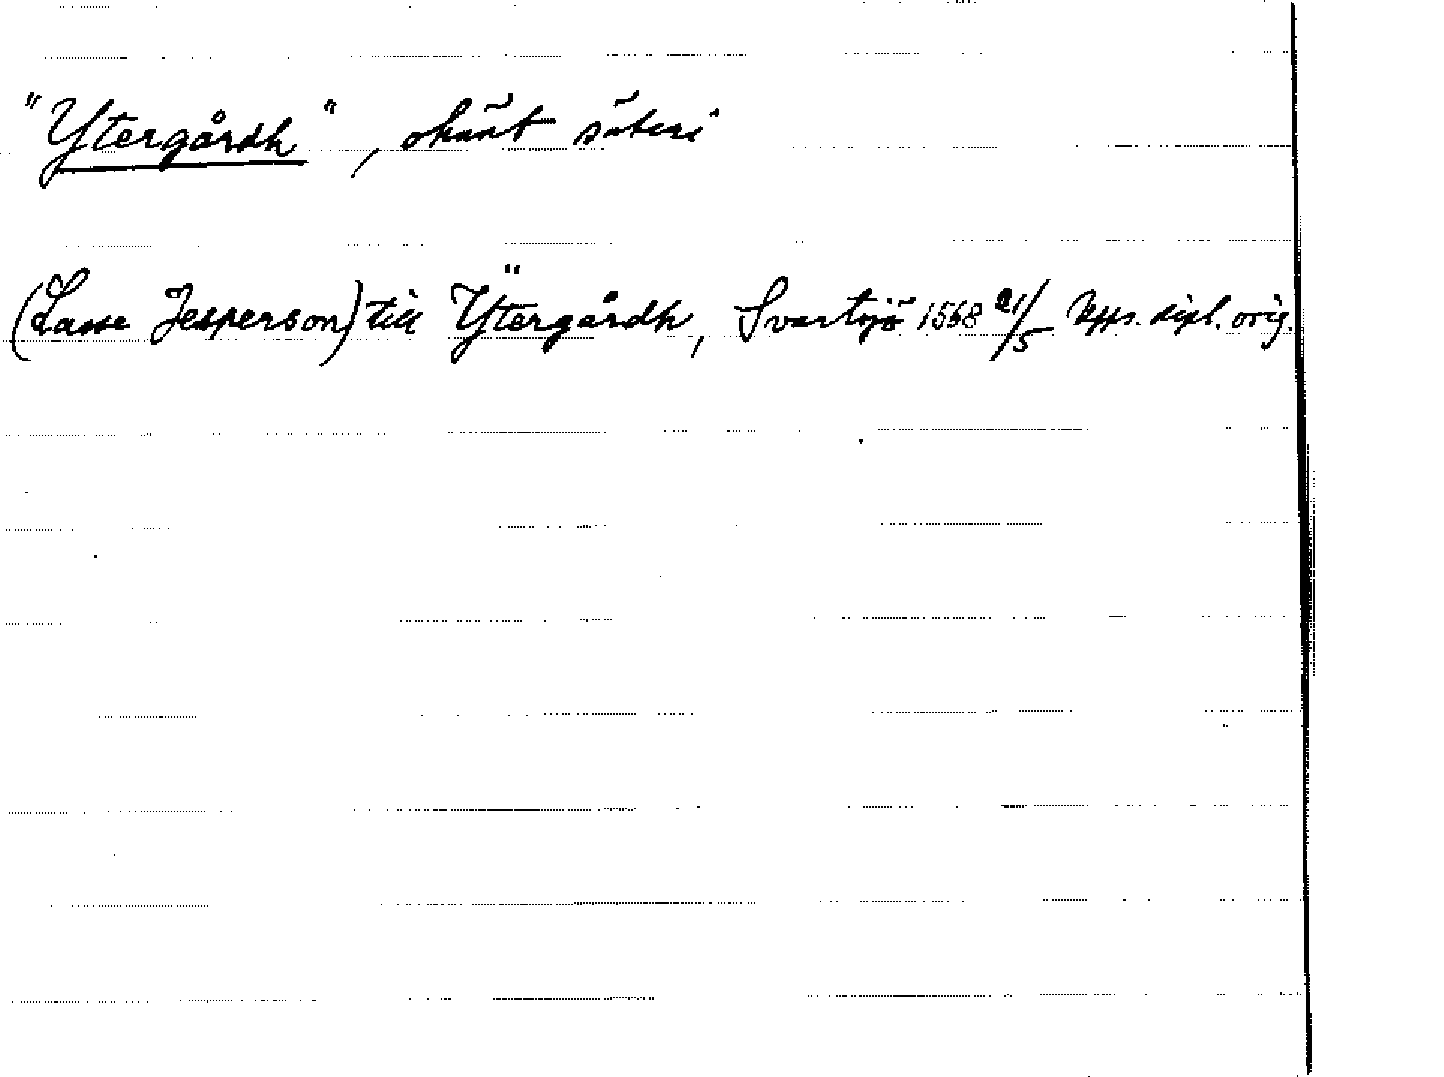 "Ytergårdh", okänt säteri
(Lasse Jesperson) till Ÿtergårdh, Svartsjö 1568 21/5 Upps. dipl. orig.